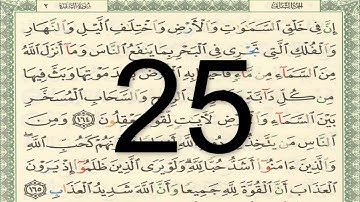 إِنَّ فِي خَلْقِ ٱلسَّمَٰوَٰتِ وَٱلْأَرْضِ وَٱخْتِلَٰفِ ٱلَّيْلِ وَٱلنَّهَارِ
وَٱلْفُلْكِ ٱلَّتِي تَجْرِي فِي ٱلْبَحْرِ بِمَا يَنفَعُ ٱلنَّاسَ وَمَآ أَنزَلَ ٱللَّهُ
مِنَ ٱلسَّمَآءِ مِن مَّآءٍ فَأَحْيَا مَوْتِهَا وَبَثَّ فِيهَا
مِن كُلِّ دَآبَّةٍ وَٱلسَّحَابِ ٱلْمُسَخَّرِ
بَيْنَ ٱلسَّمَآءِ وَٱلْأَرْضِ لَأٓيَٰتٍ لِّقَوْمٍ يَعْقِلُونَ ١٦٤ وَمِنَ
ٱلنَّاسِ مَن يَتَّخِذُ يُحِبُّونَهُمْ كَحُبِّ ٱللَّهِ
وَٱلَّذِينَ ءَامَنُوٓا۟ أَشَدُّ حُبًّا لِّلَّهِ وَلَوْ يَرَى ٱلَّذِينَ ظَلَمُوٓا۟ إِذْ يَرَوْنَ
ٱلْعَذَابَ أَنَّ ٱلْقُوَّةَ لِلَّهِ جَمِيعًا وَأَنَّ ٱللَّهَ شَدِيدُ ٱلْعَذَابِ ١٦٥
25